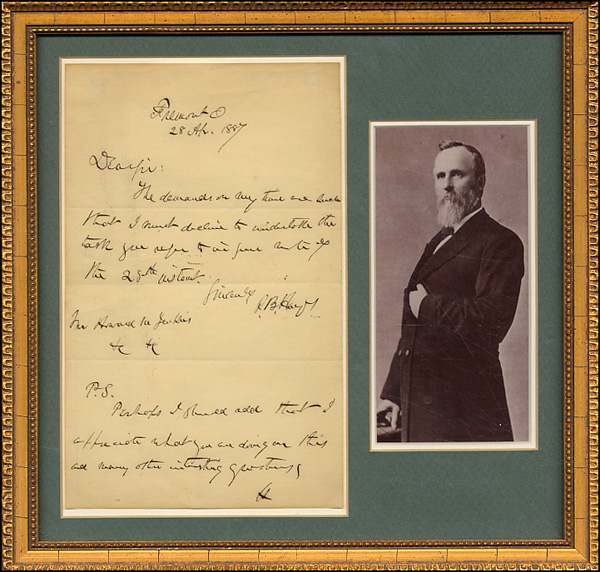 Fremont O
28 Ap. 1887
Dear Sir:
The demands on my time are such
that I must decline to undertake the
task you refer to in your note of
the 28th instant.
Sincerely
R. B. Hayes
Mr Howard M Jenkins
&c &c
P.S.
Perhaps I should add that I
appreciate what you are doing on this
and many other interesting questions
H